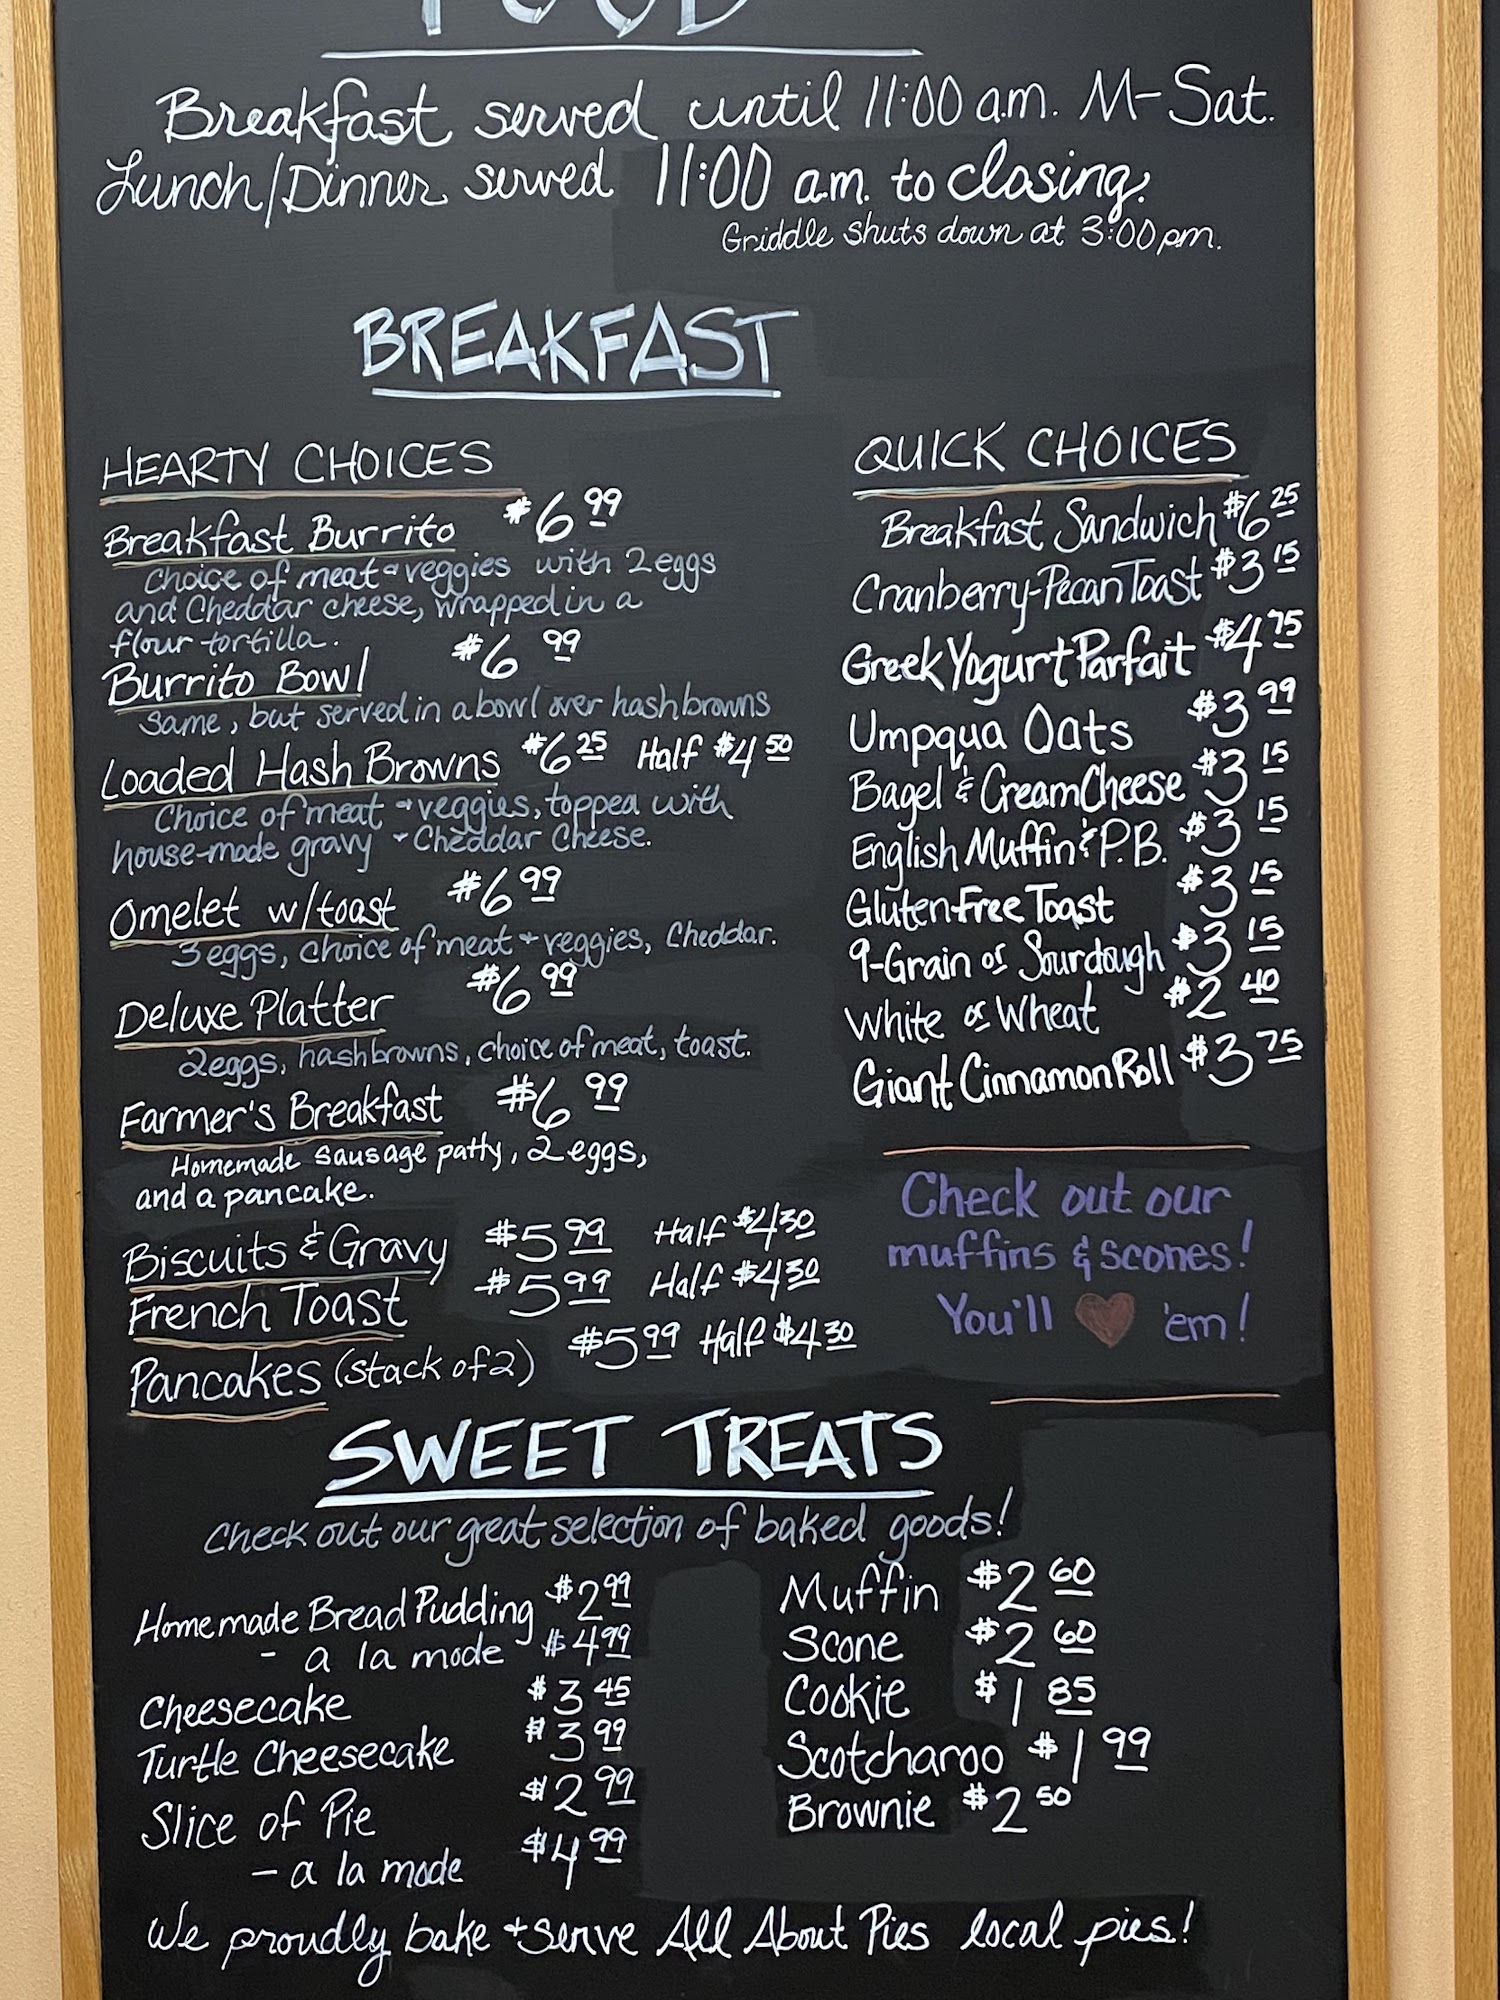 FOOD
Breakfast served until 11:00 a.m. M-Sat.
Lunch/Dinner served 11:00 a.m. to closing.
Griddle shuts down at 3:00 pm.
BREAKFAST
HEARTY CHOICES
Breakfast Burrito $6 99
Choice of meat + veggies with 2 eggs
and Cheddar cheese, wrapped in a
flour tortilla.
Burrito Bowl $6 99
Same, but served in a bowl over hashbrowns
Loaded Hash Browns $6 25 Half $4 50
Choice of meat + veggies, topped with
house-made gravy + Cheddar Cheese.
Omelet w/toast $6 99
3 eggs, choice of meat + veggies, Cheddar.
Deluxe Platter $6 99
2 eggs, hashbrowns, choice of meat, toast.
Farmer's Breakfast $6 99
Homemade sausage patty, 2 eggs,
and a pancake.
Biscuits & Gravy $5 99 Half $4 30
French Toast $5 99 Half $4 30
Pancakes (stack of 2) $5 99 Half $4 30
QUICK CHOICES
Breakfast Sandwich $6 25
Cranberry-Pecan Toast $3 15
Greek Yogurt Parfait $4 75
Umpqua Oats $3 99
Bagel & Cream Cheese $3 15
English Muffin & P.B. $3 15
Gluten-Free Toast $3 15
9-Grain or Sourdough $3 15
White or Wheat $2 40
Giant Cinnamon Roll $3 75
Check out our
muffins & scones!
You'll ♥ 'em!
SWEET TREATS
Check out our great selection of baked goods!
Homemade Bread Pudding $2 99
- a la mode $4 99
Cheesecake $3 45
Turtle Cheesecake $3 99
Slice of Pie $2 99
- a la mode $4 99
Muffin $2 60
Scone $2 60
Cookie $1 85
Scotcharoo $1 99
Brownie $2 50
We proudly bake + serve All About Pies local pies!